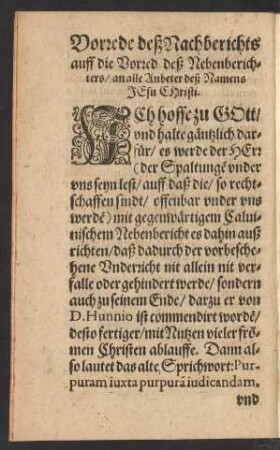 Vorrede deß Nachberichts
auff die Vorred deß Nebenberich-
ters / an alle Anbeter deß Namens
JEsu CHristi.
ICh hoffe zu GOtt /
vnd halte gäntzlich dar-
für / es werde der HErr
(der Spaltungē vnder
vns seyn lest / auff daß die / so recht-
schaffen sindt / offenbar vnder vns
werdē) mit gegenwärtigem Calui-
nischem Nebenbericht es dahin auß
richten / daß dadurch der vorbesche-
hene Vndericht nit allein nit ver-
falle oder gehindert werde / sondern
auch zu seinem Ende / darzu er von
D. Hunnio ist commendirt wordē /
desto fertiger / mit Nutzen vieler frō-
men Christen ablauffe. Dann al-
so lautet das alte Sprichwort: Pur-
puram iuxta purpurā iudicandam.
vnd